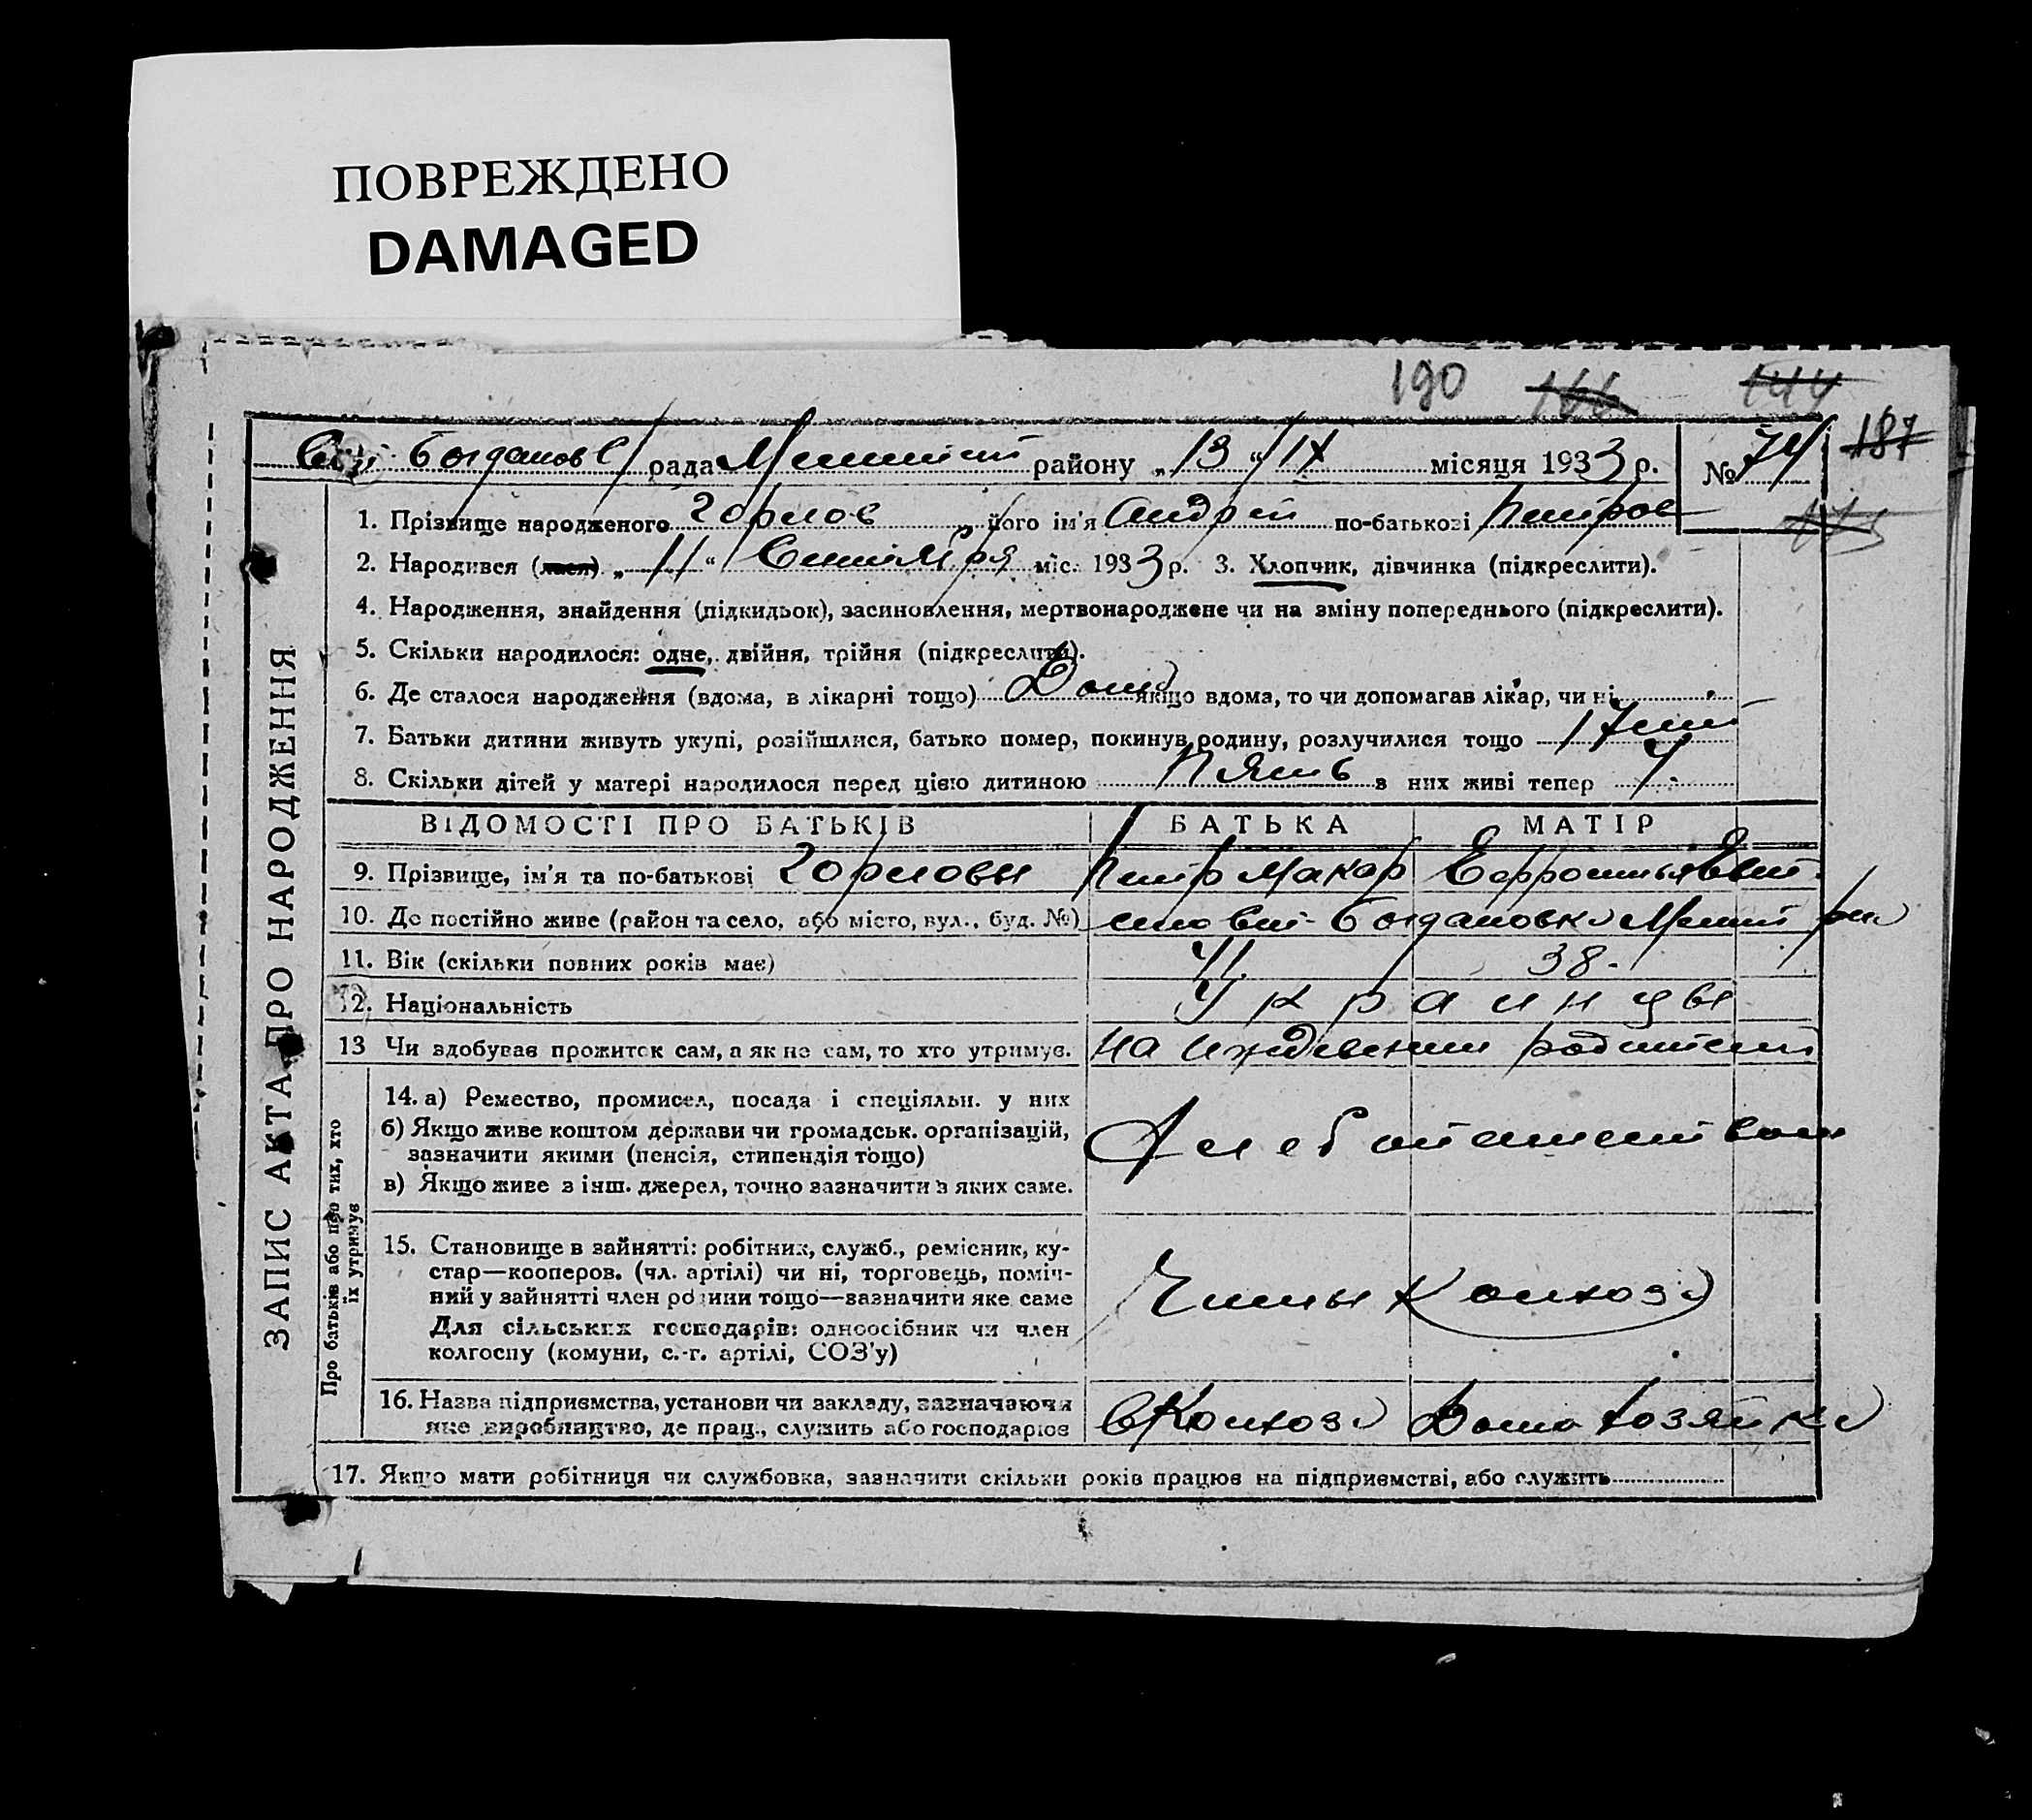 ПОВРЕЖДЕНО
DAMAGED
190 166 144
187
рада району „13“ IX місяця 1933 р. № 74
173
1. Прізвище народженого Горлов його ім'я Андрей по-батькові Петров
2. Народився (лася) „11“ Сентября міс. 1933 р. 3. Хлопчик, дівчинка (підкреслити).
4. Народження, знайдення (підкидьок), засиновлення, мертвонароджене чи на зміну попереднього (підкреслити).
5. Скільки народилося: одне, двійня, трійня (підкреслити).
6. Де сталося народження (вдома, в лікарні тощо) Дома якщо вдома, то чи допомагав лікар, чи ні
7. Батьки дитини живуть укупі, розійшлися, батько помер, покинув родину, розлучилися тощо
8. Скільки дітей у матері народилося перед цією дитиною Пять з них живі тепер 4
ВІДОМОСТІ ПРО БАТЬКІВ БАТЬКА МАТІР
9. Прізвище, ім'я та по-батькові Горловы Петр Макар Ефросинья
10. Де постійно живе (район та село, або місто, вул., буд. №) село Богдановка
11. Вік (скільки повних років має) 41. 38.
12. Національність Украинцы
13 Чи здобував прожиток сам, а як не сам, то хто утримув. на иждевении родителей
Про батьків або про тих, хто їх утримує
14. а) Ремество, промисел, посада і спеціяльн. у них
б) Якщо живе коштом держави чи громадськ. організацій,
зазначити якими (пенсія, стипендія тощо)
Хлебопашеством
в) Якщо живе з інш. джерел, точно зазначити з яких саме.
15. Становище в зайнятті: робітник, служб., ремісник, ку-
стар—кооперов. (чл. артілі) чи ні, торговець, поміч-
ний у зайнятті член родини тощо—зазначити яке саме
Члены колхоза
Для сільських господарів: одноосібник чи член
колгоспу (комуни, с.-г. артілі, СОЗ'у)
16. Назва підприємства, установи чи закладу, зазначаючи
яке виробництво, де прац., служить або господарює
в Колхозе Домохозяйка
17. Якщо мати робітниця чи службовка, зазначити скільки років працює на підприємстві, або служить
ЗАПИС АКТА ПРО НАРОДЖЕННЯ